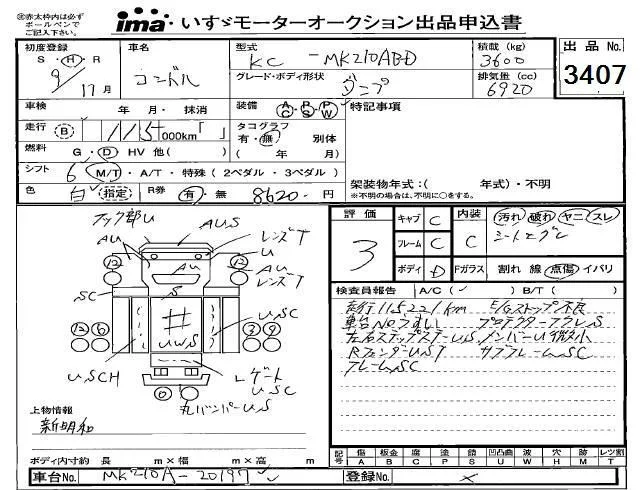 ※赤太枠内は必ず
ボールペンで
ご記入下さい。
ima いすゞモーターオークション出品申込書
初度登録 車名 型式 積載(kg) 出品 No.
S・H・R 9/ 11月 コンドル KC-MK210ABD 3600 3407
グレード・ボディ形状 ダンプ 排気量(cc) 6920
車検 年 月・抹消 装備 AC・PS・PW 特記事項
走行 B 115 000km「 」 タコグラフ 有・無 別体
燃料 G・D・HV 他( ) ( 年 月)
シフト 6 M/T・A/T・特殊(2ペダル・3ペダル)
架装物年式:( 年式)・不明
色 白 指定 R券 有・無 8620-円
※不明の場合は、不明に○をする。
評価 3
キャブ C 内装 C 汚れ 破れ ヤニ スレ
フレーム C シートエグレ
ボディ D Fガラス 割れ 線 点傷 イパリ
検査員報告 A/C( ✓ ) B/T( )
走行115221km E/Gストップ不良
車台Noうすい プロテクターフクレS
左右ステップステーU,S バンパーU微小
RフェンダーU,S,T サブフレームSC
フレームSC
フック部U
AU,S
レンズT
AU
U
AU
AU
レンズT
12 12
S
SC
#
U,W,S
U,SC
12 6
3 9
U,SCH
Lゲート
U,SC
0 0
丸バンパーU,S
上物情報
新明和
ボディ内寸約 長 m×幅 m×高 m
記号 傷 A 板金 B 腐 C 塗 P 錆 S 凹凸曲 U 波 W 穴 H 跡 M レツ割 T
車台No. MK210A-20197 登録No. ×